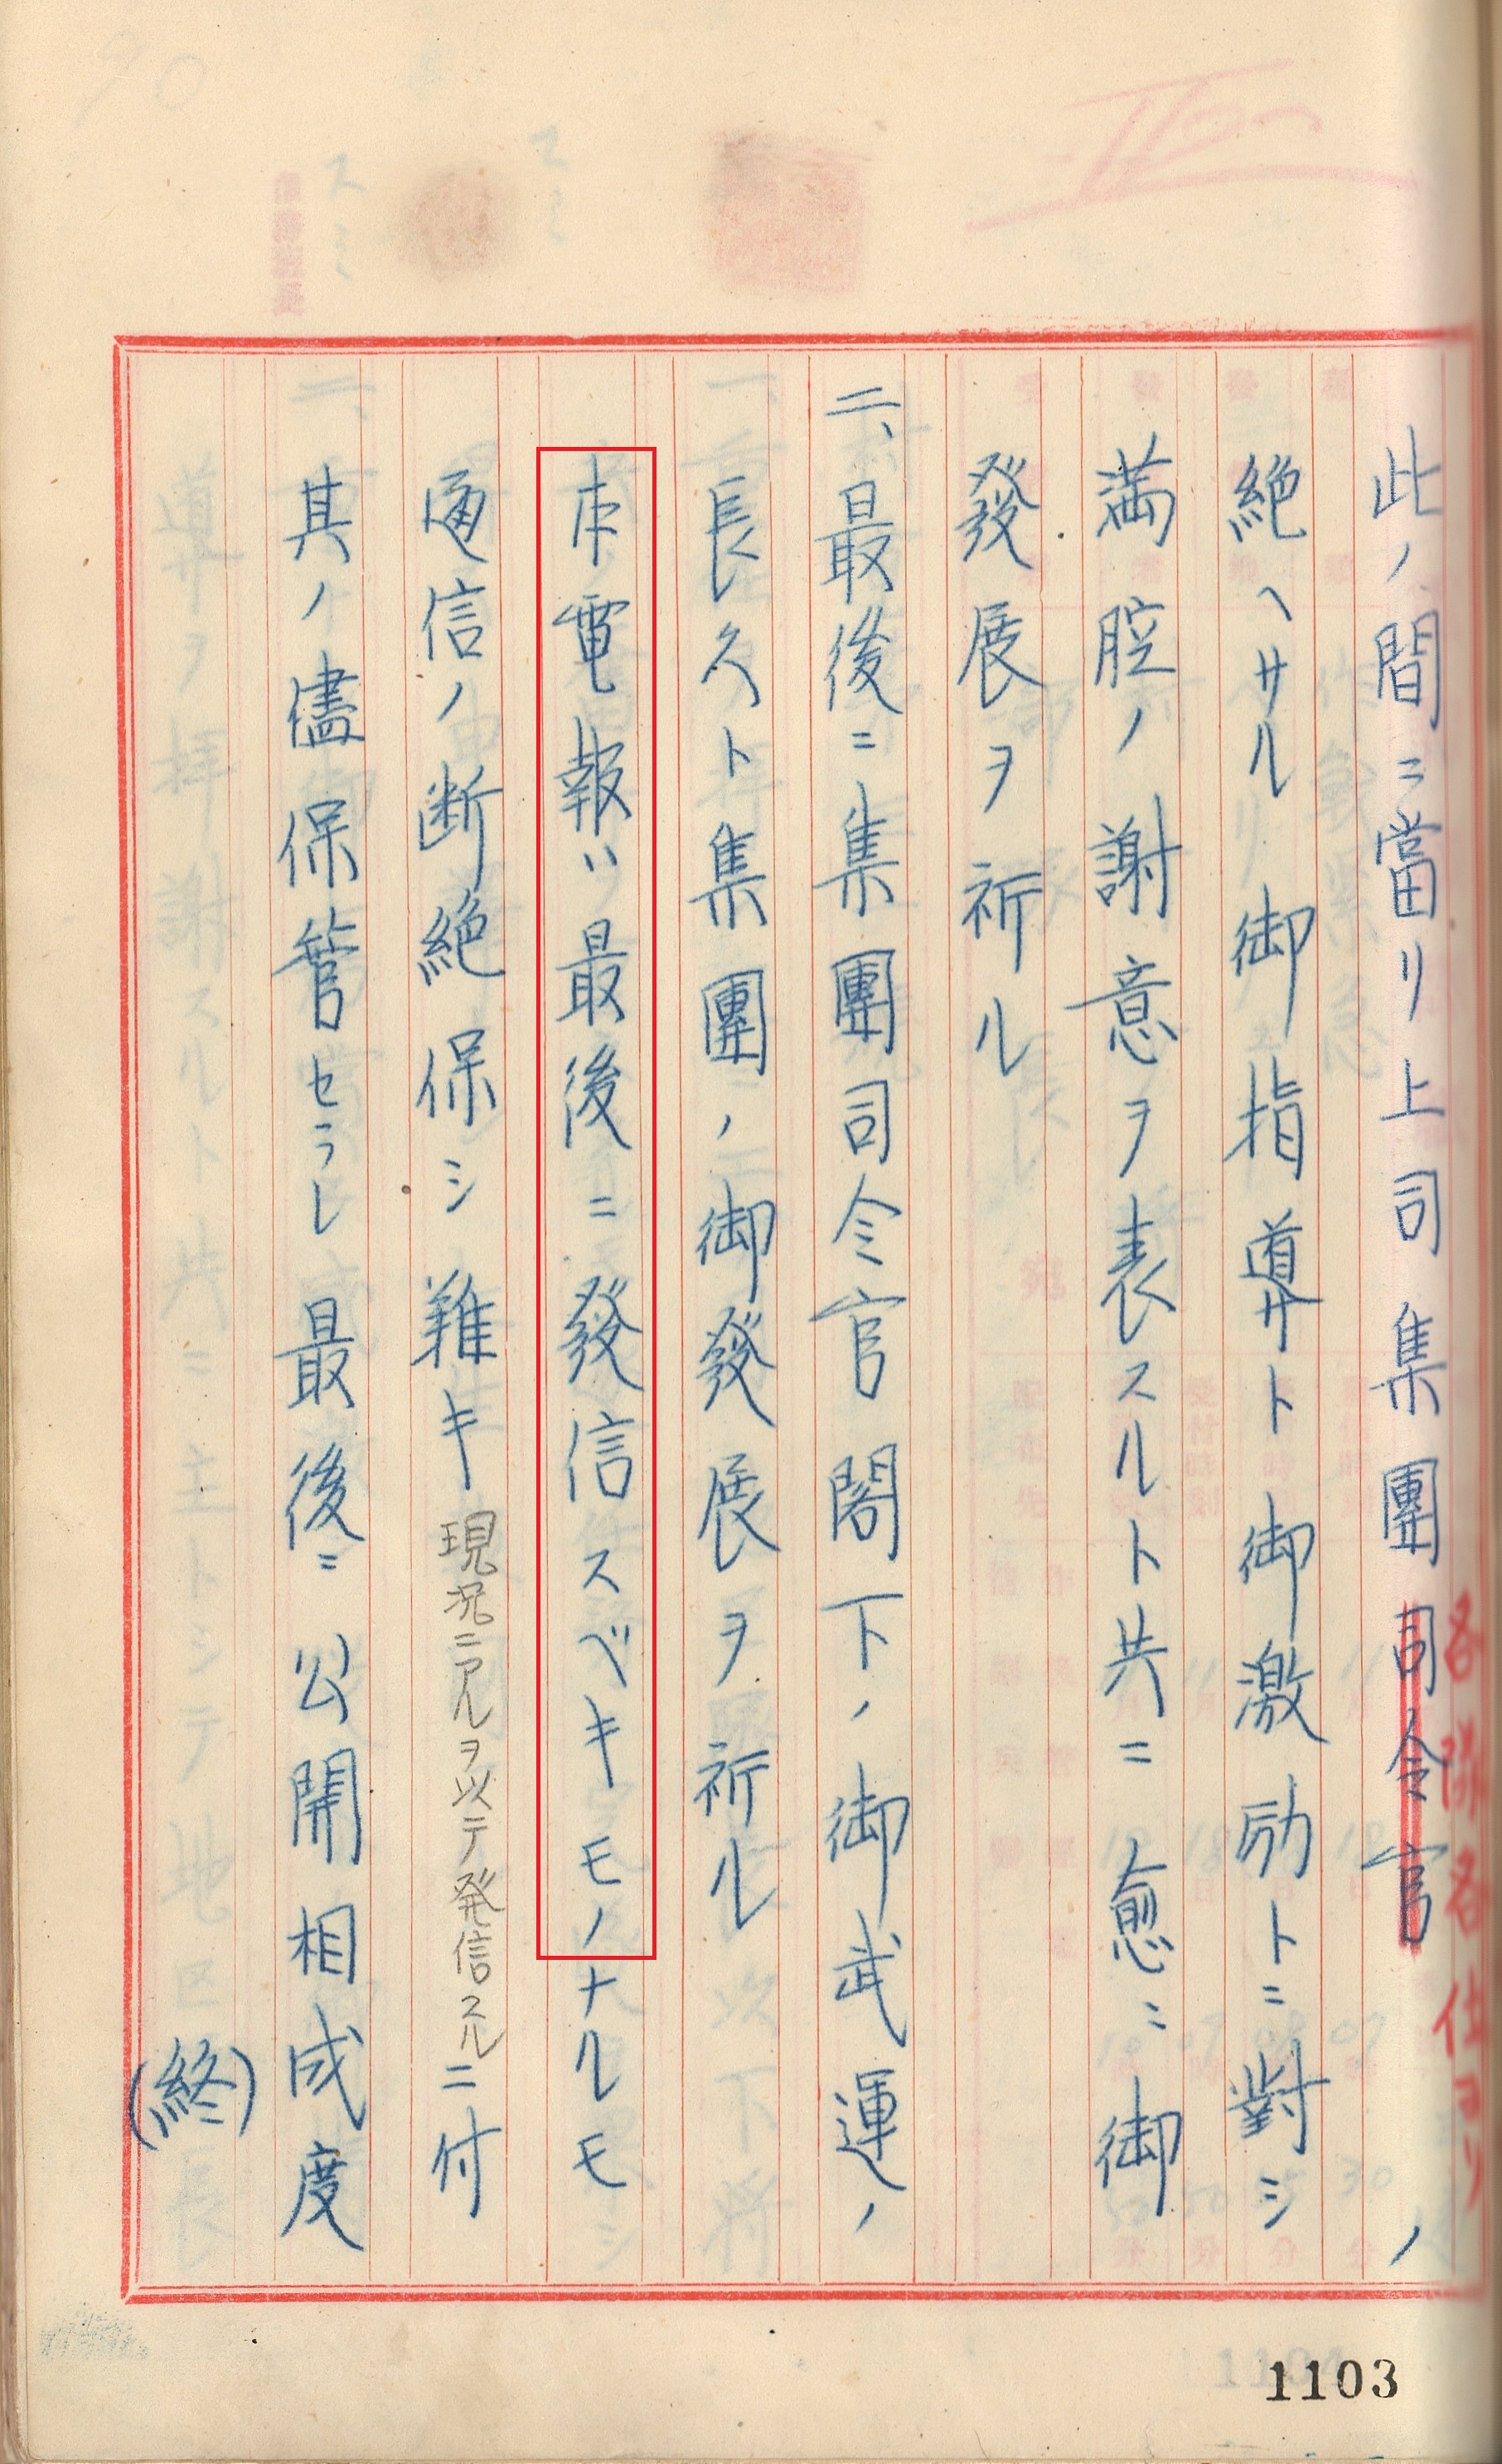 此ノ間ニ當リ上司集團司令官ノ
各隊各位ヨリ
絶ヘサル御指導ト御激励トニ對シ
満腔ノ謝意ヲ表スルト共ニ愈ニ御
發展ヲ祈ル
二、最後ニ集團司令官閣下ノ御武運ノ
長久ト集團ノ御發展ヲ祈ル
本電報ハ最後ニ發信スベキモノナルモ
通信ノ断絶保シ難キ現況ニアルヲ以テ発信スルニ付
其ノ儘保管セラレ最後ニ公開相成度
(終)
1103